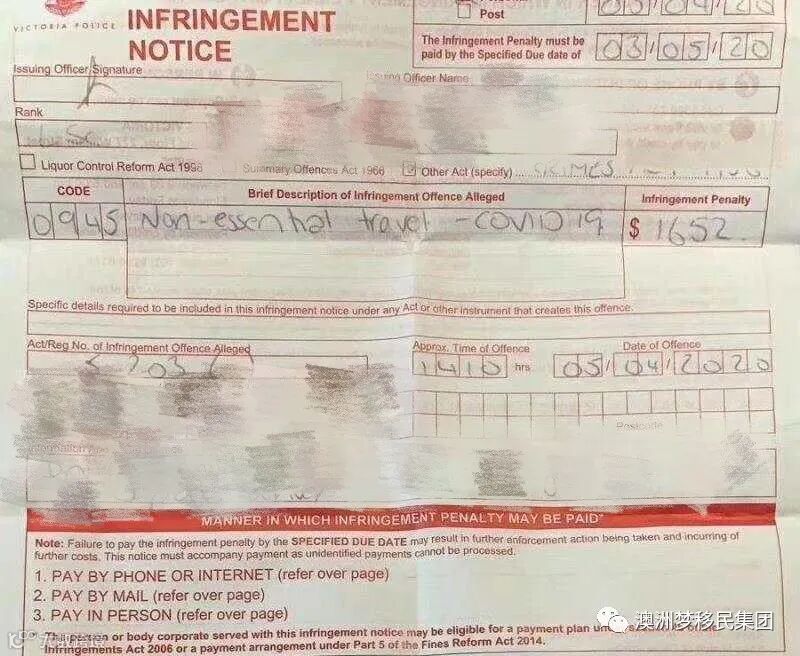 VICTORIA POLICE
INFRINGEMENT
NOTICE
Post
The Infringement Penalty must be
paid by the Specified Due date of
03/05/20
Issuing Officer Signature
Issuing Officer Name
Rank
Liquor Control Reform Act 1998
Summary Offences Act 1966
Other Act (specify)
CODE
Brief Description of Infringement Offence Alleged
Infringement Penalty
0945
Non-essential travel - COVID 19
$ 1652.
Specific details required to be included in this infringement notice under any Act or other instrument that creates this offence.
Act/Reg No. of Infringement Offence Alleged
Approx. Time of Offence
Date of Offence
1410 hrs
05/04/2020
Postcode
MANNER IN WHICH INFRINGEMENT PENALTY MAY BE PAID
Note: Failure to pay the infringement penalty by the SPECIFIED DUE DATE may result in further enforcement action being taken and incurring of
further costs. This notice must accompany payment as unidentified payments cannot be processed.
1. PAY BY PHONE OR INTERNET (refer over page)
2. PAY BY MAIL (refer over page)
3. PAY IN PERSON (refer over page)
The person or body corporate served with this infringement notice may be eligible for a payment plan
Infringements Act 2006 or a payment arrangement under Part 5 of the Fines Reform Act 2014.
澳洲梦移民集团